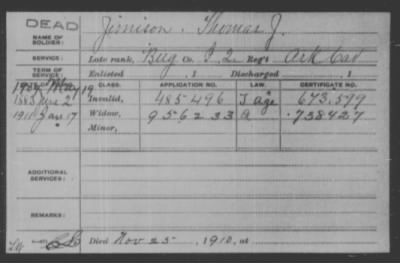 DEAD
NAME OF SOLDIER: Jimison, Thomas J.
SERVICE: Late rank, Bug Co. I, 2 Reg't Ark Cav
TERM OF SERVICE: Enlisted , 1 Discharged , 1
CLASS. APPLICATION NO. LAW. CERTIFICATE NO.
1883 June 2 Invalid, 485496 J age 673.579
1911 Jan 17 Widow, 956233 a 738427
Minor,
ADDITIONAL SERVICES:
REMARKS:
Died Nov 25, 1910, at